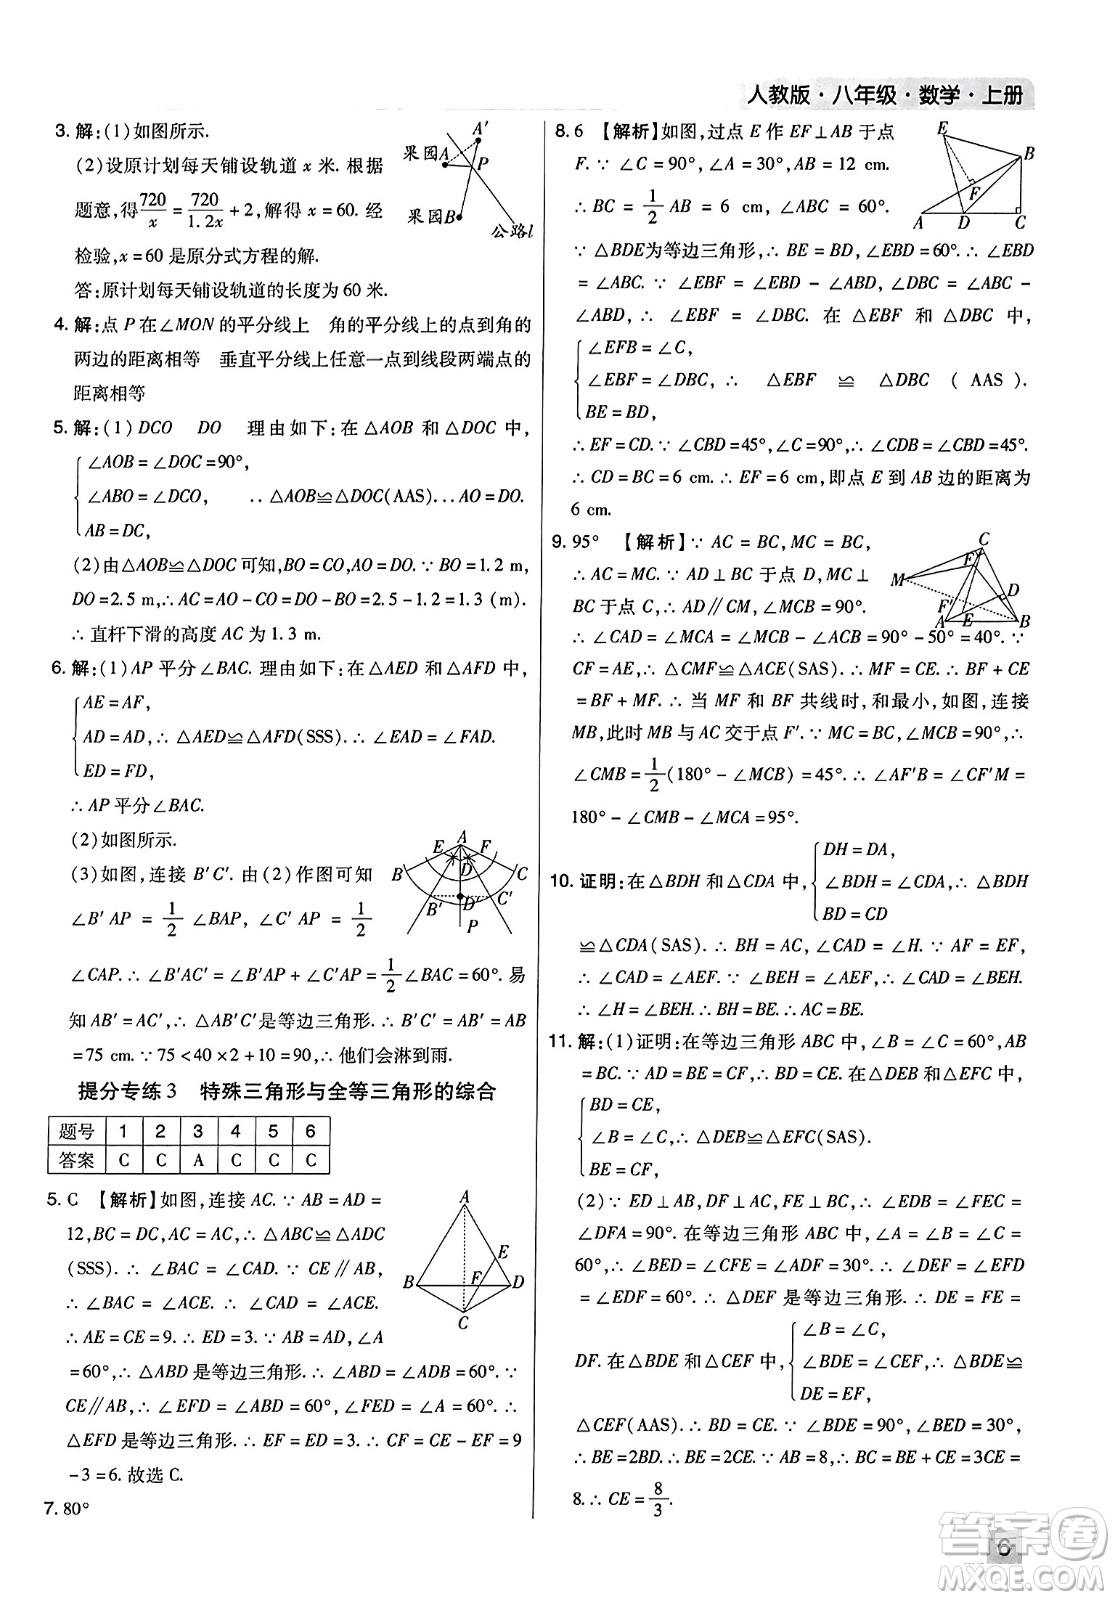 人教版·八年级·数学·上册
3. 解:(1)如图所示.
(2)设原计划每天铺设轨道 x 米. 根据
题意,得720/x = 720/1.2x + 2,解得 x = 60. 经
检验, x = 60 是原分式方程的解.
答:原计划每天铺设轨道的长度为 60 米.
果园A
A′
P
果园B
公路l
4. 解:点 P 在∠MON 的平分线上　角的平分线上的点到角的
两边的距离相等　垂直平分线上任意一点到线段两端点的
距离相等
5. 解:(1) DCO　DO　理由如下:在△AOB 和△DOC 中,
∠AOB = ∠DOC = 90°,
∠ABO = ∠DCO,　∴△AOB≌△DOC(AAS). ∴AO = DO.
AB = DC,
(2)由△AOB≌△DOC 可知,BO = CO,AO = DO. ∵BO = 1.2 m,
DO = 2.5 m,∴AC = AO - CO = DO - BO = 2.5 - 1.2 = 1.3 (m).
∴直杆下滑的高度 AC 为 1.3 m.
6. 解:(1) AP 平分∠BAC. 理由如下:在△AED 和△AFD 中,
AE = AF,
AD = AD, ∴△AED≌△AFD(SSS). ∴∠EAD = ∠FAD.
ED = FD,
∴AP 平分∠BAC.
(2)如图所示.
(3)如图,连接 B′C′. 由(2)作图可知
∠B′AP = 1/2 ∠BAP, ∠C′AP = 1/2
∠CAP. ∴∠B′AC′ = ∠B′AP + ∠C′AP = 1/2∠BAC = 60°. 易
知 AB′ = AC′, ∴△AB′C′是等边三角形. ∴B′C′ = AB′ = AB
= 75 cm. ∵75 < 40 × 2 + 10 = 90, ∴他们会淋到雨.
A
E F
D
B C
B′ D′ C′
P
提分专练 3　特殊三角形与全等三角形的综合
题号 1 2 3 4 5 6
答案 C C A C C C
5. C 【解析】如图,连接 AC. ∵AB = AD =
12,BC = DC,∴△ABC≌△ADC
(SSS). ∴∠BAC = ∠CAD. ∵CE∥AB,
∴∠BAC = ∠ACE. ∴∠CAD = ∠ACE.
∴AE = CE = 9. ∴ED = 3. ∵AB = AD,∠A
= 60°,∴△ABD 是等边三角形. ∴∠ABD = ∠ADB = 60°. ∵
CE∥AB,∴∠EFD = ∠ABD = 60°,∠FED = ∠A = 60°. ∴
△EFD 是等边三角形. ∴EF = ED = 3. ∴CF = CE - EF = 9
- 3 = 6. 故选 C.
A
E
B F D
C
7. 80°
8. 6 【解析】如图,过点 E 作 EF⊥AB 于点
F. ∵∠C = 90°,∠A = 30°,AB = 12 cm.
∴BC = 1/2 AB = 6 cm,∠ABC = 60°.
∵△BDE为等边三角形,∴BE = BD,∠EBD = 60°. ∴∠EBD
= ∠ABC. ∴∠EBF = ∠EBD - ∠ABD = ∠ABC -
∠ABD,∴∠EBF = ∠DBC. 在△EBF 和△DBC 中,
∠EFB = ∠C,
∠EBF = ∠DBC, ∴△EBF≌△DBC (AAS).
BE = BD,
∴EF = CD. ∵∠CBD = 45°,∠C = 90°,∴∠CDB = ∠CBD = 45°.
∴CD = BC = 6 cm. ∴EF = 6 cm,即点 E 到 AB 边的距离为
6 cm.
E
B
F
A D C
9. 95° 【解析】∵AC = BC,MC = BC,
∴AC = MC. ∵AD⊥BC 于点 D,MC⊥
BC 于点 C,∴AD∥CM,∠MCB = 90°.
∴∠CAD = ∠MCA = ∠MCB - ∠ACB = 90° - 50° = 40°. ∵
CF = AE,∴△CMF≌△ACE(SAS). ∴MF = CE. ∴BF + CE
= BF + MF. ∴当 MF 和 BF 共线时,和最小,如图,连接
MB,此时 MB 与 AC 交于点 F′. ∵MC = BC,∠MCB = 90°,∴
∠CMB = 1/2(180° - ∠MCB) = 45°. ∴∠AF′B = ∠CF′M =
180° - ∠CMB - ∠MCA = 95°.
C
F
M
F′ D
A E B
10. 证明:在△BDH 和△CDA 中,
DH = DA,
∠BDH = ∠CDA, ∴△BDH
BD = CD
≌△CDA(SAS). ∴BH = AC,∠CAD = ∠H. ∵AF = EF,
∴∠CAD = ∠AEF. ∵∠BEH = ∠AEF,∴∠CAD = ∠BEH.
∴∠H = ∠BEH. ∴BH = BE. ∴AC = BE.
11. 解:(1)证明:在等边三角形 ABC 中,∠B = ∠C = 60°,AB
= BC. ∵AD = BE,∴BD = CE. 在△DEB 和△EFC 中,
BD = CE,
∠B = ∠C,∴△DEB≌△EFC(SAS).
BE = CF,
(2)∵ED⊥AB,DF⊥AC,FE⊥BC,∴∠EDB = ∠FEC =
∠DFA = 90°. 在等边三角形 ABC 中,∠A = ∠B = ∠C =
60°,∴∠BED = ∠CFE = ∠ADF = 30°. ∴∠DEF = ∠DFE
= ∠EDF = 60°. ∴△DEF 是等边三角形. ∴DE = FE =
DF. 在△BDE 和△CEF 中,
∠B = ∠C,
∠BDE = ∠CEF, ∴△BDE≌
DE = EF,
△CEF(AAS). ∴BD = CE. ∵∠BDE = 90°,∠BED = 30°,
∴BE = 2BD = 2CE. ∵AB = 8,∴BC = BE + CE = 3CE =
8. ∴CE = 8/3.
6
答案圈
MXQE.COM